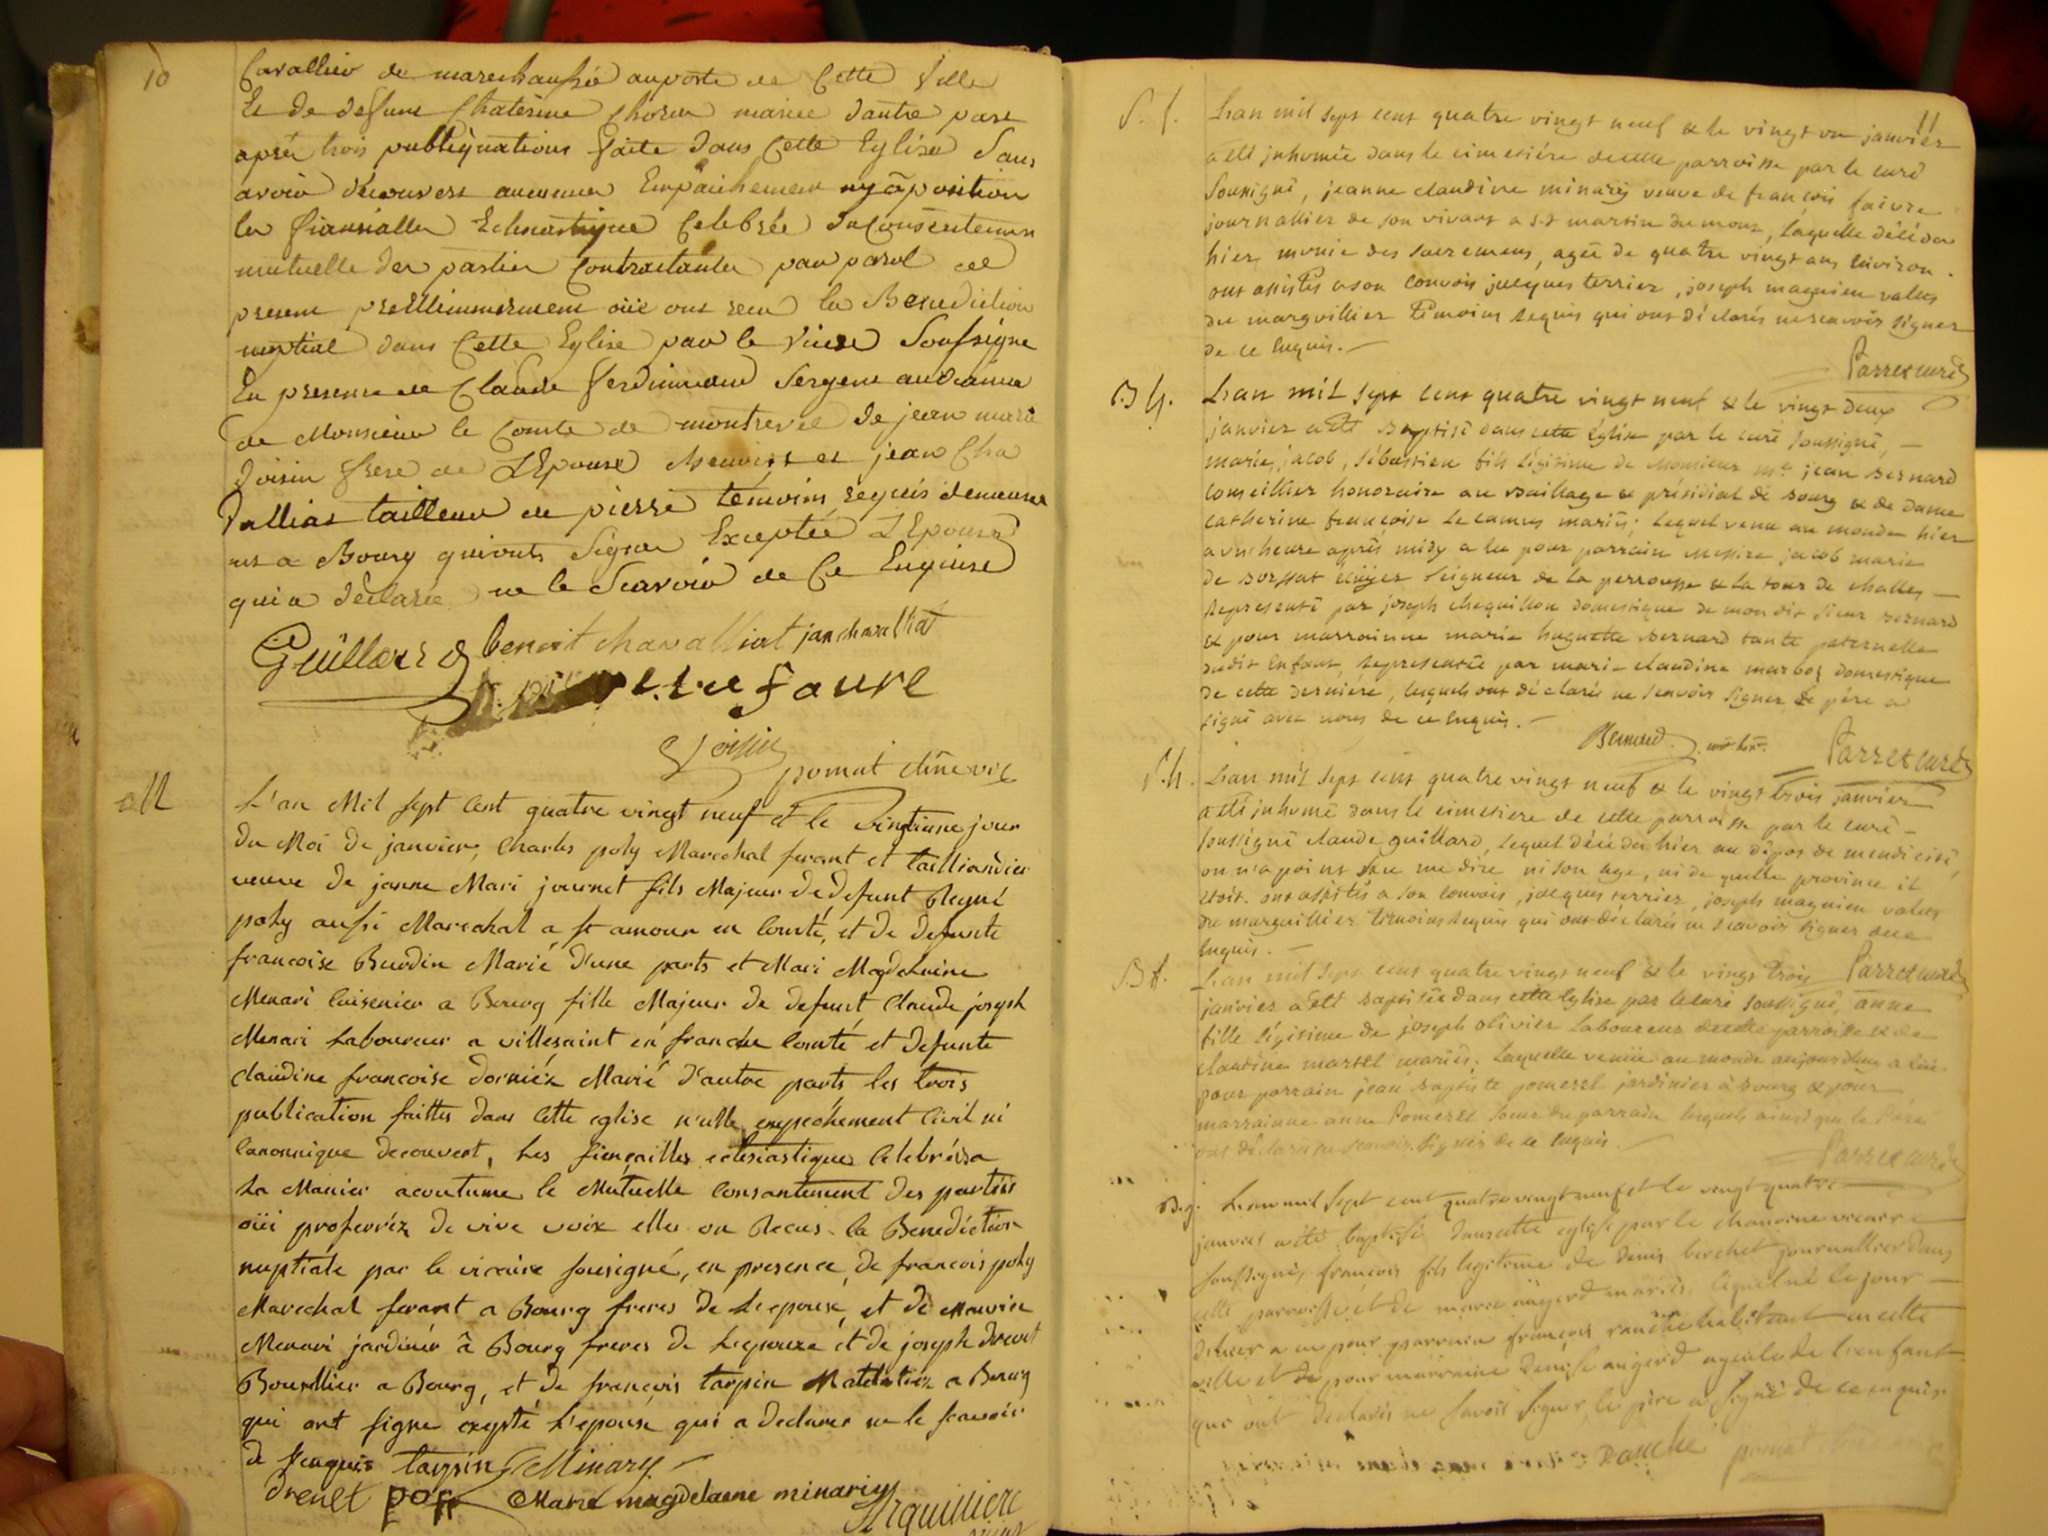 10
Cavallier de marechaussée au poste de Cette Ville
Et de defunt Chaterine mariee d'autre part
aprer trois publiquations faite dans Cette Eglise Sans
avoir découvert aucunner Empaichement ny oposition
les fiansialler Eclesiastique Celebrée du Consentemen
mutuelle der partier Contractanter par parol de
present oüie ont recu la Benediction
nuptial dans Cette Eglise par le Vicre Soussigne
En presence de Claude ferdinnand Sergent
de Monsieur le Comte de montrevel de jean marie
Voisin frere de L'Epouse et jean Cha
Vallias tailleur de pierre temoins requis demeuran
ns a Bourg qui ont Signer Exceptée L'Epouse
qui a déclarée ne le Scavoir de Ce Enquise
benoit chavalliat jan chavalliat
faure
Voisin
pomat
M
L'an Mil sept Cent quatre vingt neuf et le vingtieme jour
du Moi de janvier, Charles poly Marechal ferant et tailliandier
veuve de janne Mari journet fils Majeur de defunt Regné
poly aussi Marechal a st amour en Comté, et de defunte
francoise Burdin Marié d'une parts et Mari Magdelaine
Menari Cuisenier a Bourg fille Majeur de defunt Claude joseph
Menari Laboureur a villesaint en franche Comté et defunte
Claudine francoise dorniér Marié d'autre parts les trois
publication faittes dans Cette eglise n'ulle empechement Civil ni
Canonnique decouvert, Les fiençailles eclesiastiques Celebrés a
La Manier acoutume le Mutuelle Consantement des parties
oüi proferréz de vive voix elles on Recus la Benediction
nuptiale par le vicaire sousigné, en presence de francois poly
Marechal ferant a Bourg freres de L'epouse, et de
Menari jardinér â Bourg freres de L'epouze et de joseph Drevet
Bourllier a Bourg, et de francois tarpin a Bourg
qui ont signe exepté L'epouse qui a declarer ne le scavoir
de s'enquis tarpin Minary
Drevet poly Marie magdelaene minariy
11
L'an mil sept cent quatre vingt neuf & le vingt un janvier
a été inhumée dans le cimetiére de cette parroisse par le curé
soussigné, jeanne claudine minarÿ veuve de françois faivre
journallier de son vivant a st martin du mont, laquelle décédée
hier, munie des sacremens, agée de quatre vingt ans environ.
ont assistés a son convois jacques terrier, joseph magnien valets
du marguillier témoins requis qui ont déclarés ne scavoir signer
de ce enquis.
Parret curé
L'an mil sept cent quatre vingt neuf & le vingt deux
janvier a été baptisé dans cette église par le curé soussigné,
marie, jacob, sébastien fils légitime de Monsieur me jean Bernard
conseiller honoraire au Bailliage & présidial de Bourg & de dame
catherine françoise Le camus mariés; lequel venu au monde hier
a une heure aprés midy a eu pour parrain messire jacob marie
de écüÿer seigneur de la perrousse & la tour de challes
représenté par joseph chequillon domestique de mondit sieur Bernard
& pour marrainne marie huguette Bernard tante paternelle
dudit enfant, representée par marie claudine domestique
de cette derniére, lesquels ont déclarés ne scavoir signer le pére a
signé avec nous de ce enquis.
Bernard.
Parret curé
L'an mil sept cent quatre vingt neuf & le vingt trois janvier
a été inhumé dans le cimetiere de cette parroisse par le curé
soussigné claude guillard, lequel décédé hier au dépos de mendicité,
on n'a point seu me dire ni son age, ni de quelle province il
étoit. ont assistés a son convois, jacques terrier, joseph magnien valets
du marguillier témoins requis qui ont déclarés ne scavoir signer de ce
enquis.
Parret curé
L'an mil sept cent quatre vingt neuf & le vingt trois
janvier a été baptisée dans cette Eglise par le curé soussigné, anne
fille légitime de joseph olivier Laboureur de cette parroisse & de
claudine martel mariés. Laquelle venue au monde aujourdhui a eüe
pour parrain jean baptiste pomerel jardinier à Bourg & pour
marrainne anne Pomerel soeur du parrain lesquels ainsi que le Pere
ont déclarés ne scavoir signer de ce enquis.
Parret curé
L'an mil sept cent quatrevingt neuf et le vingt quatre
janvier a été baptisé dans cette eglise par le chanoine vicaire
soussigné, françois fils legitime de denis journallier dans
cette parroisse et de marie mariés, lequel né le jour
d'hier a eu pour parrain françois habitant en cette
ville et pour marraine denise ayeule de l'enfant
qui ont declarés ne savoir signer le pére a signé de ce enquis
pomat